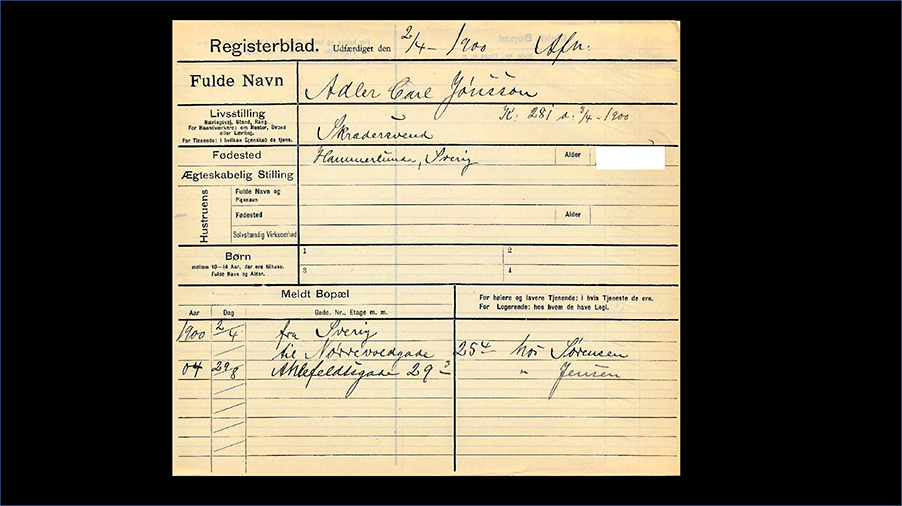 Registerblad. Udfærdiget den 2/4 - 1900 Afn.
Fulde Navn Adler Carl Jönsson
Livsstilling
Næringsvej, Stand, Rang.
For Haandværkere: om Mester, Svend
eller Lærling.
For Tjenende: i hvilken Egenskab de tjene.
K: 281 d. 3/4 - 1900
Skrædersvend
Fødested Hammerlunda, Sverig Alder
Ægteskabelig Stilling
Hustruens
Fulde Navn og
Pigenavn
Fødested Alder
Selvstændig Virksomhed
Børn
mellem 10-14 Aar, der ere tilhuse.
Fulde Navn og Alder.
1 2
3 4
Meldt Bopæl
For højere og lavere Tjenende: i hvis Tjeneste de ere.
For Logerende: hos hvem de have Logi.
Aar Dag Gade, Nr., Etage m. m.
1900 2/4 fra Sverig
til Nørrevoldgade 25 4 hos Sørensen
04 29/8 Ahlefeldtsgade 29 - 3 " Jensen